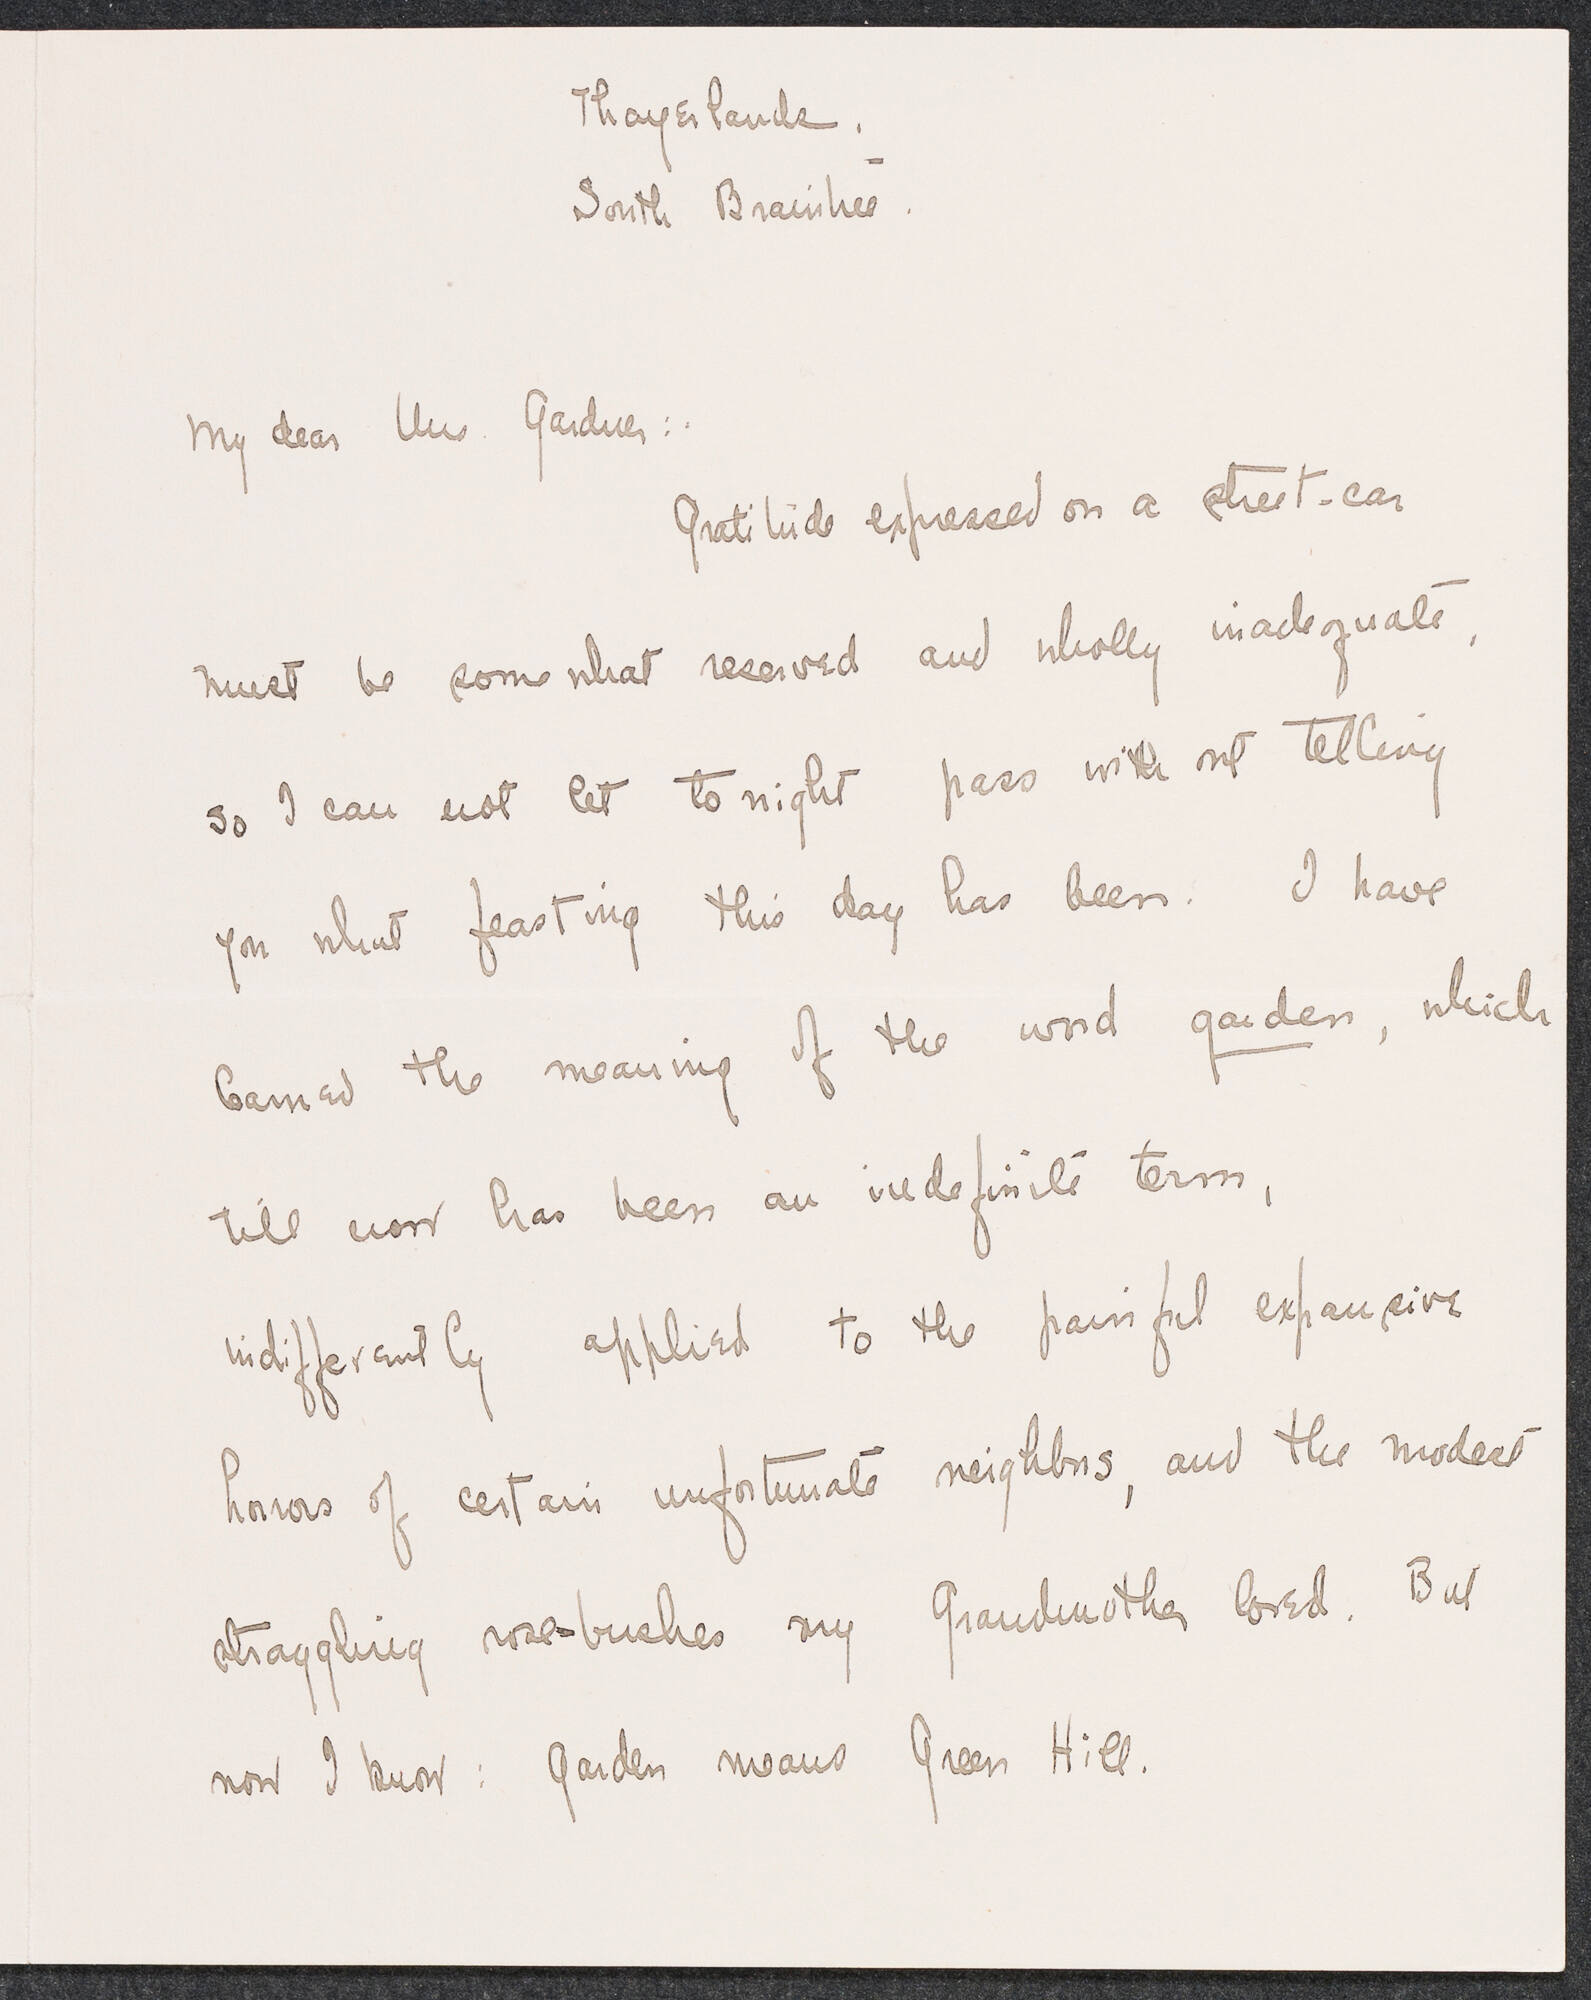 Thayerlands.
South Braintree.
My dear Mrs. Gardner:.
Gratitude expressed on a street-car
must be somewhat reserved and wholly inadequate,
so I can not let tonight pass without telling
you what feasting this day has been. I have
learned the meaning of the word garden, which
till now has been an indefinite term,
indifferently applied to the painful expansive
horrors of certain unfortunate neighbors, and the modest
straggling rose-bushes my Grandmother loved. But
now I know: Garden means Green Hill.